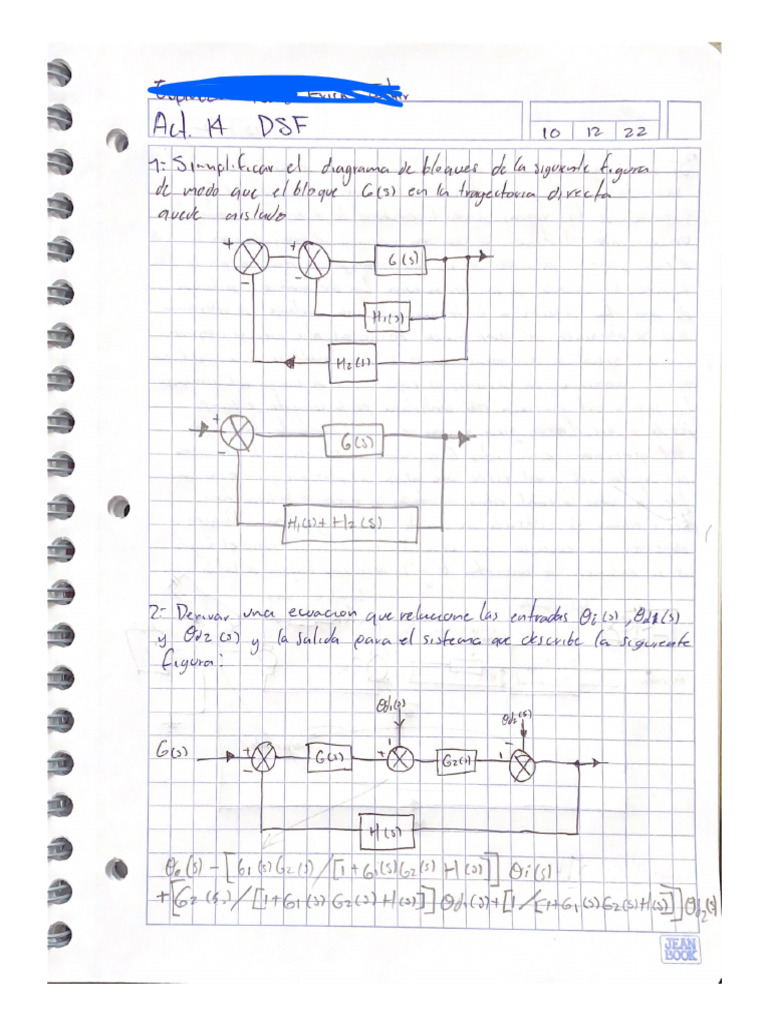 Act. 14 DSF
10 12 22
1=. Simplificar el diagrama de bloques de la siguiente figura
de modo que el bloque G(s) en la trayectoria directa
quede aislado
+ + G(s)
- -
H1(s)
H2(s)
+ G(s)
-
H1(s)+ H2(s)
2=. Derivar una ecuacion que relacione las entradas θi(s), θd1(s)
y θd2(s) y la salida para el sistema que describe la siguiente
figura:
θd1(s) θd2(s)
G(s) + G(s) + G2(s) -
-
H(s)
θo(s) - [G1(s)G2(s)/[1+G1(s)G2(s) H(s)]] θi(s)
+[G2(s)/[1+G1(s) G2(s)H(s)]] θd1(s)+[1/[1+G1(s)G2(s)H(s)]]θd2(s)
JEAN
BOOK